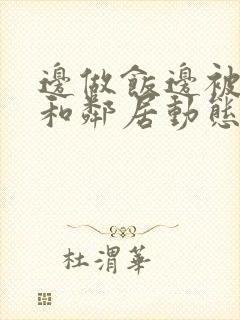 邊做飯邊被
和鄰居動態
杜渭華